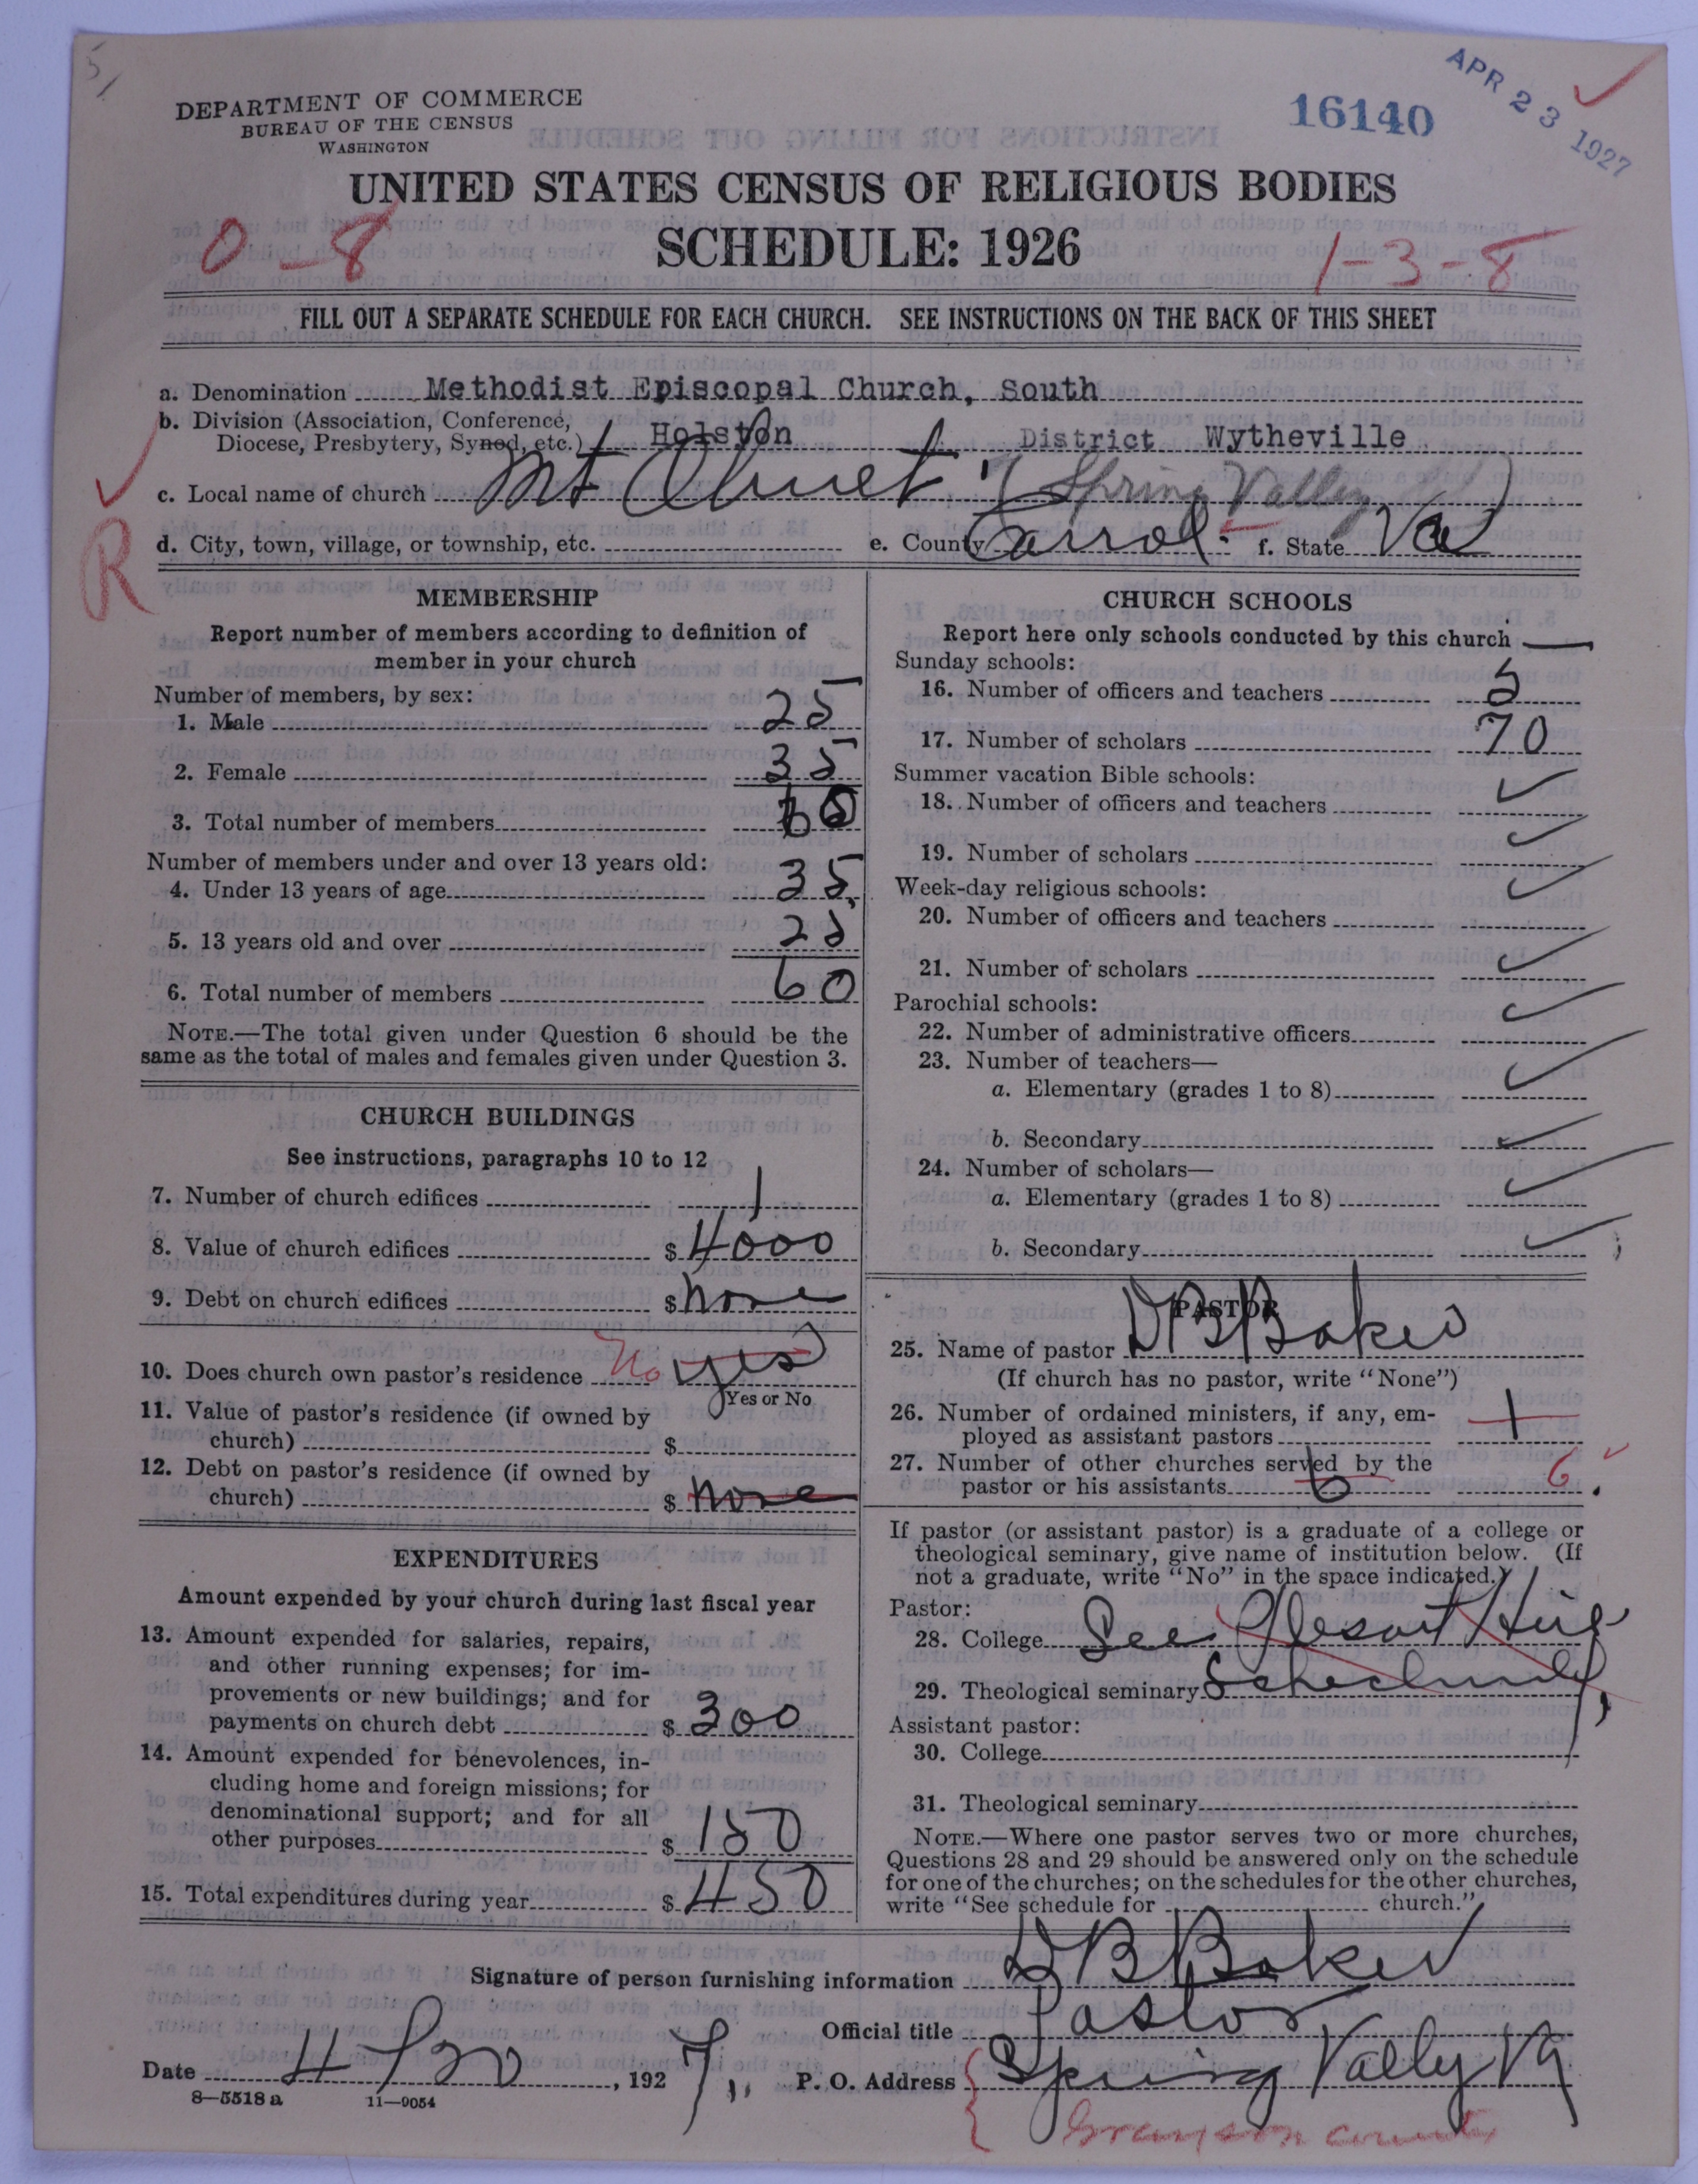 5
DEPARTMENT OF COMMERCE
BUREAU OF THE CENSUS
WASHINGTON
16140
APR 23 1927
UNITED STATES CENSUS OF RELIGIOUS BODIES
SCHEDULE: 1926
0-8
1-3-8
FILL OUT A SEPARATE SCHEDULE FOR EACH CHURCH. SEE INSTRUCTIONS ON THE BACK OF THIS SHEET
a. Denomination Methodist Episcopal Church, South
b. Division (Association, Conference,
Diocese, Presbytery, Synod, etc.) Holston District Wytheville
c. Local name of church Mt Olivet (Spring Valley)
d. City, town, village, or township, etc. e. County Carrol f. State Va
R
MEMBERSHIP
Report number of members according to definition of
member in your church
Number of members, by sex:
1. Male 25
2. Female 35
3. Total number of members 60
Number of members under and over 13 years old:
4. Under 13 years of age 35
5. 13 years old and over 25
6. Total number of members 60
NOTE.—The total given under Question 6 should be the
same as the total of males and females given under Question 3.
CHURCH BUILDINGS
See instructions, paragraphs 10 to 12
7. Number of church edifices 1
8. Value of church edifices $ 4000
9. Debt on church edifices $ none
10. Does church own pastor's residence No yes
Yes or No
11. Value of pastor's residence (if owned by
church) $
12. Debt on pastor's residence (if owned by
church) $ none
EXPENDITURES
Amount expended by your church during last fiscal year
13. Amount expended for salaries, repairs,
and other running expenses; for im-
provements or new buildings; and for
payments on church debt $ 300
14. Amount expended for benevolences, in-
cluding home and foreign missions; for
denominational support; and for all
other purposes $ 150
15. Total expenditures during year $ 450
CHURCH SCHOOLS
Report here only schools conducted by this church
Sunday schools:
16. Number of officers and teachers 5
17. Number of scholars 70
Summer vacation Bible schools:
18. Number of officers and teachers
19. Number of scholars
Week-day religious schools:
20. Number of officers and teachers
21. Number of scholars
Parochial schools:
22. Number of administrative officers
23. Number of teachers—
a. Elementary (grades 1 to 8)
b. Secondary
24. Number of scholars—
a. Elementary (grades 1 to 8)
b. Secondary
PASTOR
25. Name of pastor D B Baker
(If church has no pastor, write "None")
26. Number of ordained ministers, if any, em-
ployed as assistant pastors 1
27. Number of other churches served by the
pastor or his assistants 6 6
If pastor (or assistant pastor) is a graduate of a college or
theological seminary, give name of institution below. (If
not a graduate, write "No" in the space indicated.)
Pastor:
28. College See
29. Theological seminary
Assistant pastor:
30. College
31. Theological seminary
NOTE.—Where one pastor serves two or more churches,
Questions 28 and 29 should be answered only on the schedule
for one of the churches; on the schedules for the other churches,
write "See schedule for church."
Signature of person furnishing information D B Baker
Official title Pastor
Date 4/20, 1927 P. O. Address Spring Vally Va
Grayson county
8—5518 a 11—9054